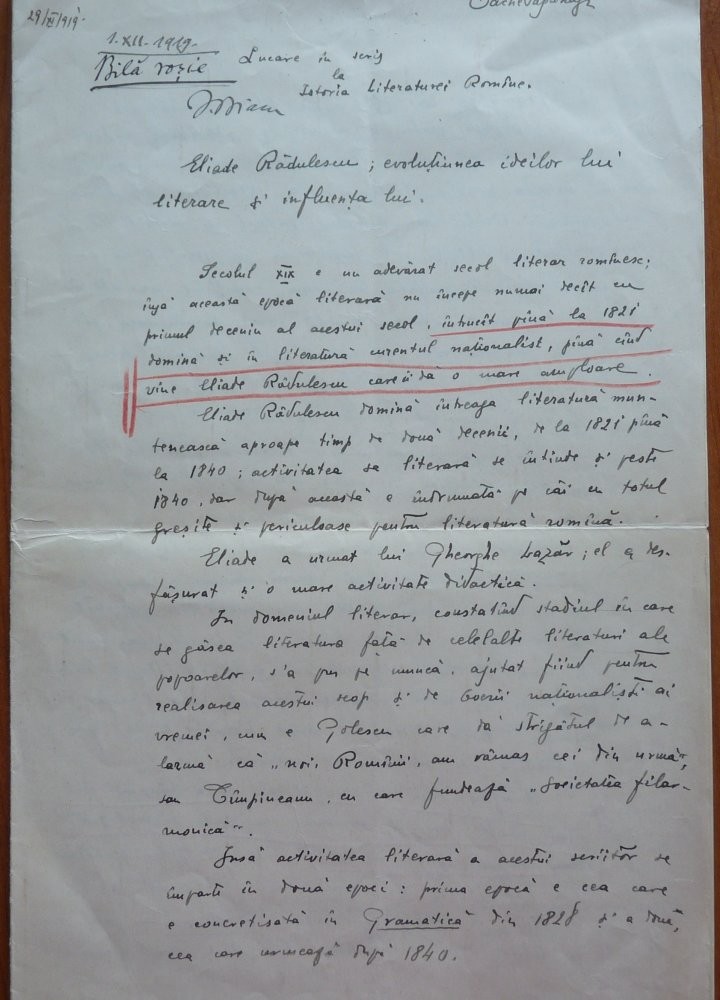 29/XI/1919
1. XII. 1919.
Bilă roșie
Lucrare în scris
la
Istoria Literaturei Române.
Eliade Rădulescu; evoluțiunea ideilor lui
literare și influența lui.
Secolul XIX e un adevărat secol literar românesc;
însă această epocă literară nu începe numai decît cu
primul deceniu al acestui secol, întrucît pînă la 1821
domină și în literatură curentul naționalist, pînă cînd
vine Eliade Rădulescu care îi dă o mare amploare.
Eliade Rădulescu domină întreaga literatură mun-
tenească aproape timp de două decenii, de la 1821 pînă
la 1840; activitatea sa literară se întinde și peste
1840, dar după aceasta e îndrumată pe căi cu totul
greșite și periculoase pentru literatură română.
Eliade a urmat lui Gheorghe Lazăr; el a des-
fășurat și o mare activitate didactică.
In domeniul literar, constatînd stadiul în care
se găsea literatura față de celelalte literaturi ale
popoarelor, s'a pus pe muncă, ajutat fiind pentru
realisarea acestui scop și de boerii naționaliști ai
vremei, cum e Golescu care dă strigătul de a-
larmă că „noi, Românii, am rămas cei din urmă",
sau Cîmpineanu, cu care fundează „Societatea filar-
monică".
Insă activitatea literară a acestui scriitor se
împarte în două epoci: prima epocă e cea care
e concretisată în Gramatică din 1828 și a două,
cea care urmează după 1840.